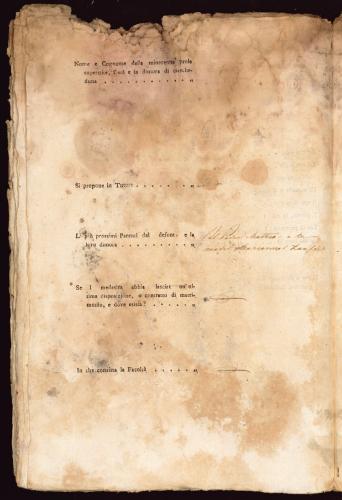 Nome e Cognome della minorenne prole
superstite, l'età e la dimora di ciascheduna . . . . . . . . . . . . „
Si propone in Tutore . . . . . . . . . „
I più prossimi Parenti del defont. e la
loro dimora . . . . . . . . . . . . „
Se i medesimi abbia lasciat un'ultima disposizione, o contratto di matrimonio, e dove esista? . . . . . . . „
In che consista la Facoltà . . . . . . . „